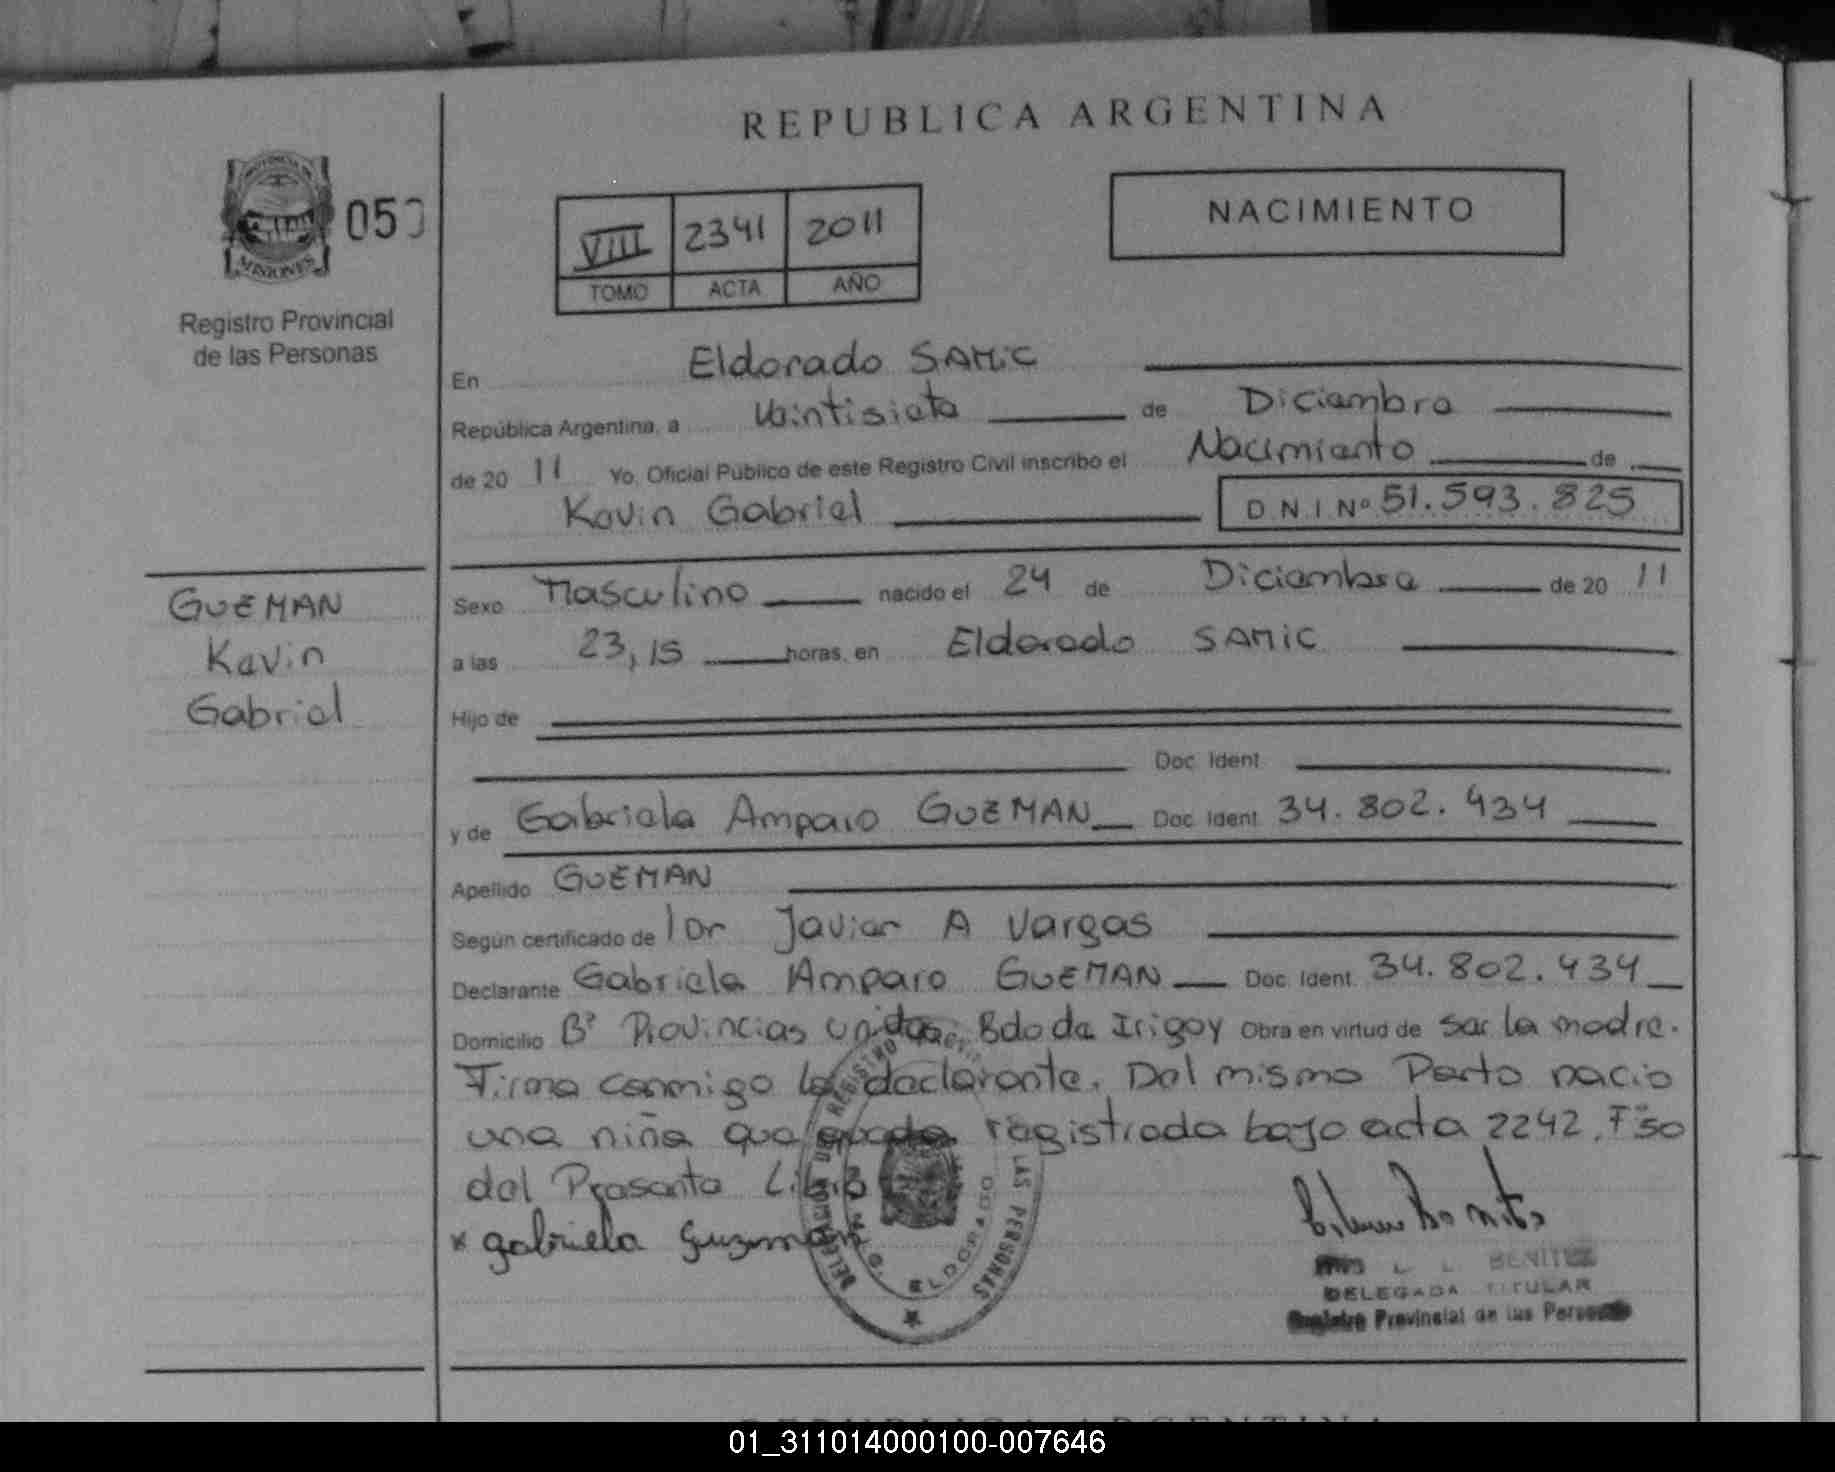 REPUBLICA ARGENTINA
PROVINCIA DE
MISIONES
050
Registro Provincial
de las Personas
VIII 2341 2011
TOMO ACTA AÑO
NACIMIENTO
En Eldorado SAMIC
República Argentina, a Veintisiete de Diciembre
de 20 11 Yo, Oficial Público de este Registro Civil inscribo el Nacimiento de
Kevin Gabriel D.N.I Nº 51.593.825
GUZMAN
Kevin
Gabriel
Sexo Masculino nacido el 24 de Diciembre de 20 11
a las 23,15 horas, en Eldorado SAMIC
Hijo de
Doc. Ident.
y de Gabriela Amparo GUZMAN Doc. Ident. 34.802.434
Apellido GUZMAN
Según certificado de Dr Javier A Vargas
Declarante Gabriela Amparo GUZMAN Doc. Ident. 34.802.434
Domicilio Bº Provincias Unidas, Bdo de Irigoy Obra en virtud de ser la madre.
Firma conmigo la declarante. Del mismo Parto nacio
una niña que queda registrada bajo acta 2242, Fº50
del Presente Libro
x gabriela guzman
DELEGACION DEL REGISTRO DE LAS PERSONAS
ELDORADO
BENITEZ
DELEGADA TITULAR
Registro Provincial de las Personas
REPUBLICA ARGENTINA
01_311014000100-007646